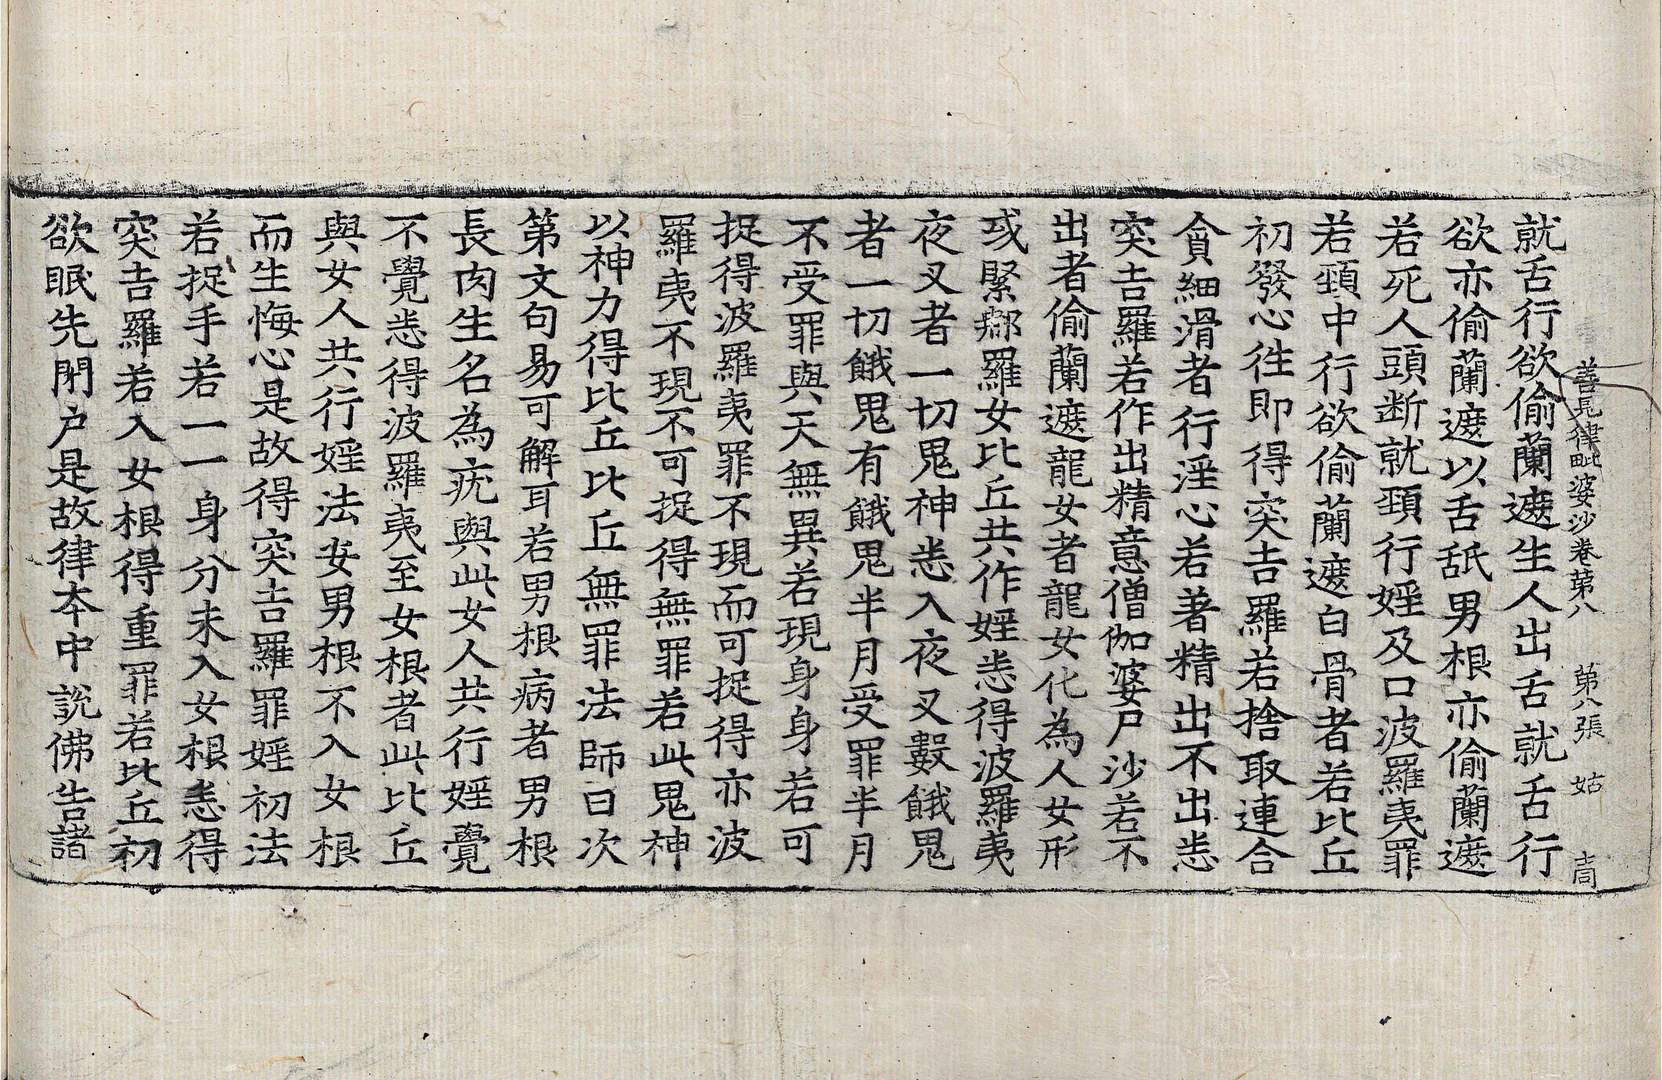 善見律毗婆沙卷第八 第八張 姑
就舌行欲偷蘭遮生人出舌就舌行
欲亦偷蘭遮以舌舐男根亦偷蘭遮
若死人頭断就頚行婬及口波羅夷罪
若頚中行欲偷蘭遮白骨者若比丘
初發心往即得突吉羅若捨取連合
貪細滑者行淫心若著精出不出悉
突吉羅若作出精意僧伽婆尸沙若不
出者偷蘭遮龍女者龍女化為人女形
或緊那羅女比丘共作婬悉得波羅夷
夜叉者一切鬼神悉入夜叉數餓鬼
者一切餓鬼有餓鬼半月受罪半月
不受罪與天無異若現身身若可
捉得波羅夷罪不現而可捉得亦波
羅夷不現不可捉得無罪若此鬼神
以神力得比丘比丘無罪法師曰次
第文句易可解耳若男根病者男根
長肉生名為疣與此女人共行婬覺
不覺悉得波羅夷至女根者此比丘
與女人共行婬法女男根不入女根
而生悔心是故得突吉羅罪婬初法
若捉手若一一身分未入女根悉得
突吉羅若入女根得重罪若比丘初
欲眠先閇户是故律夲中說佛告諸